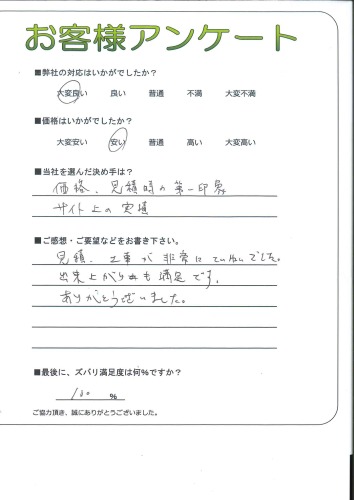 お客様アンケート
■弊社の対応はいかがでしたか？
大変良い 良い 普通 不満 大変不満
■価格はいかがでしたか？
大変安い 安い 普通 高い 大変高い
■当社を選んだ決め手は？
価格、見積時の第一印象
サイト上の実績
■ご感想・ご要望などをお書き下さい。
見積、工事が非常にていねいでした。
出来上がりも満足です。
ありがとうございました。
■最後に、ズバリ満足度は何％ですか？
100 ％
ご協力頂き、誠にありがとうございました。